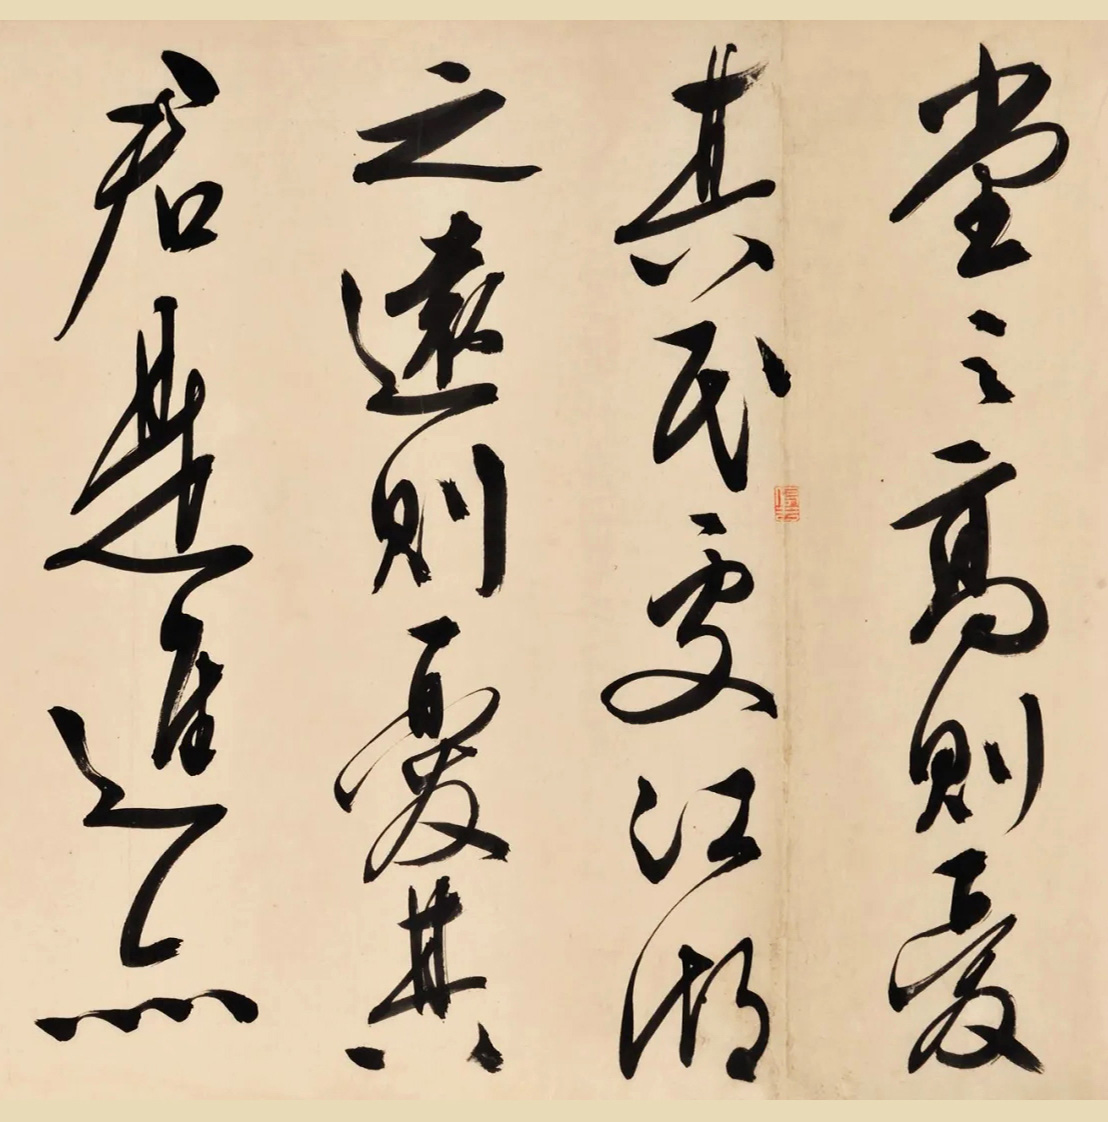 堂之高則憂
其民處江湖
之遠則憂其
君是進亦